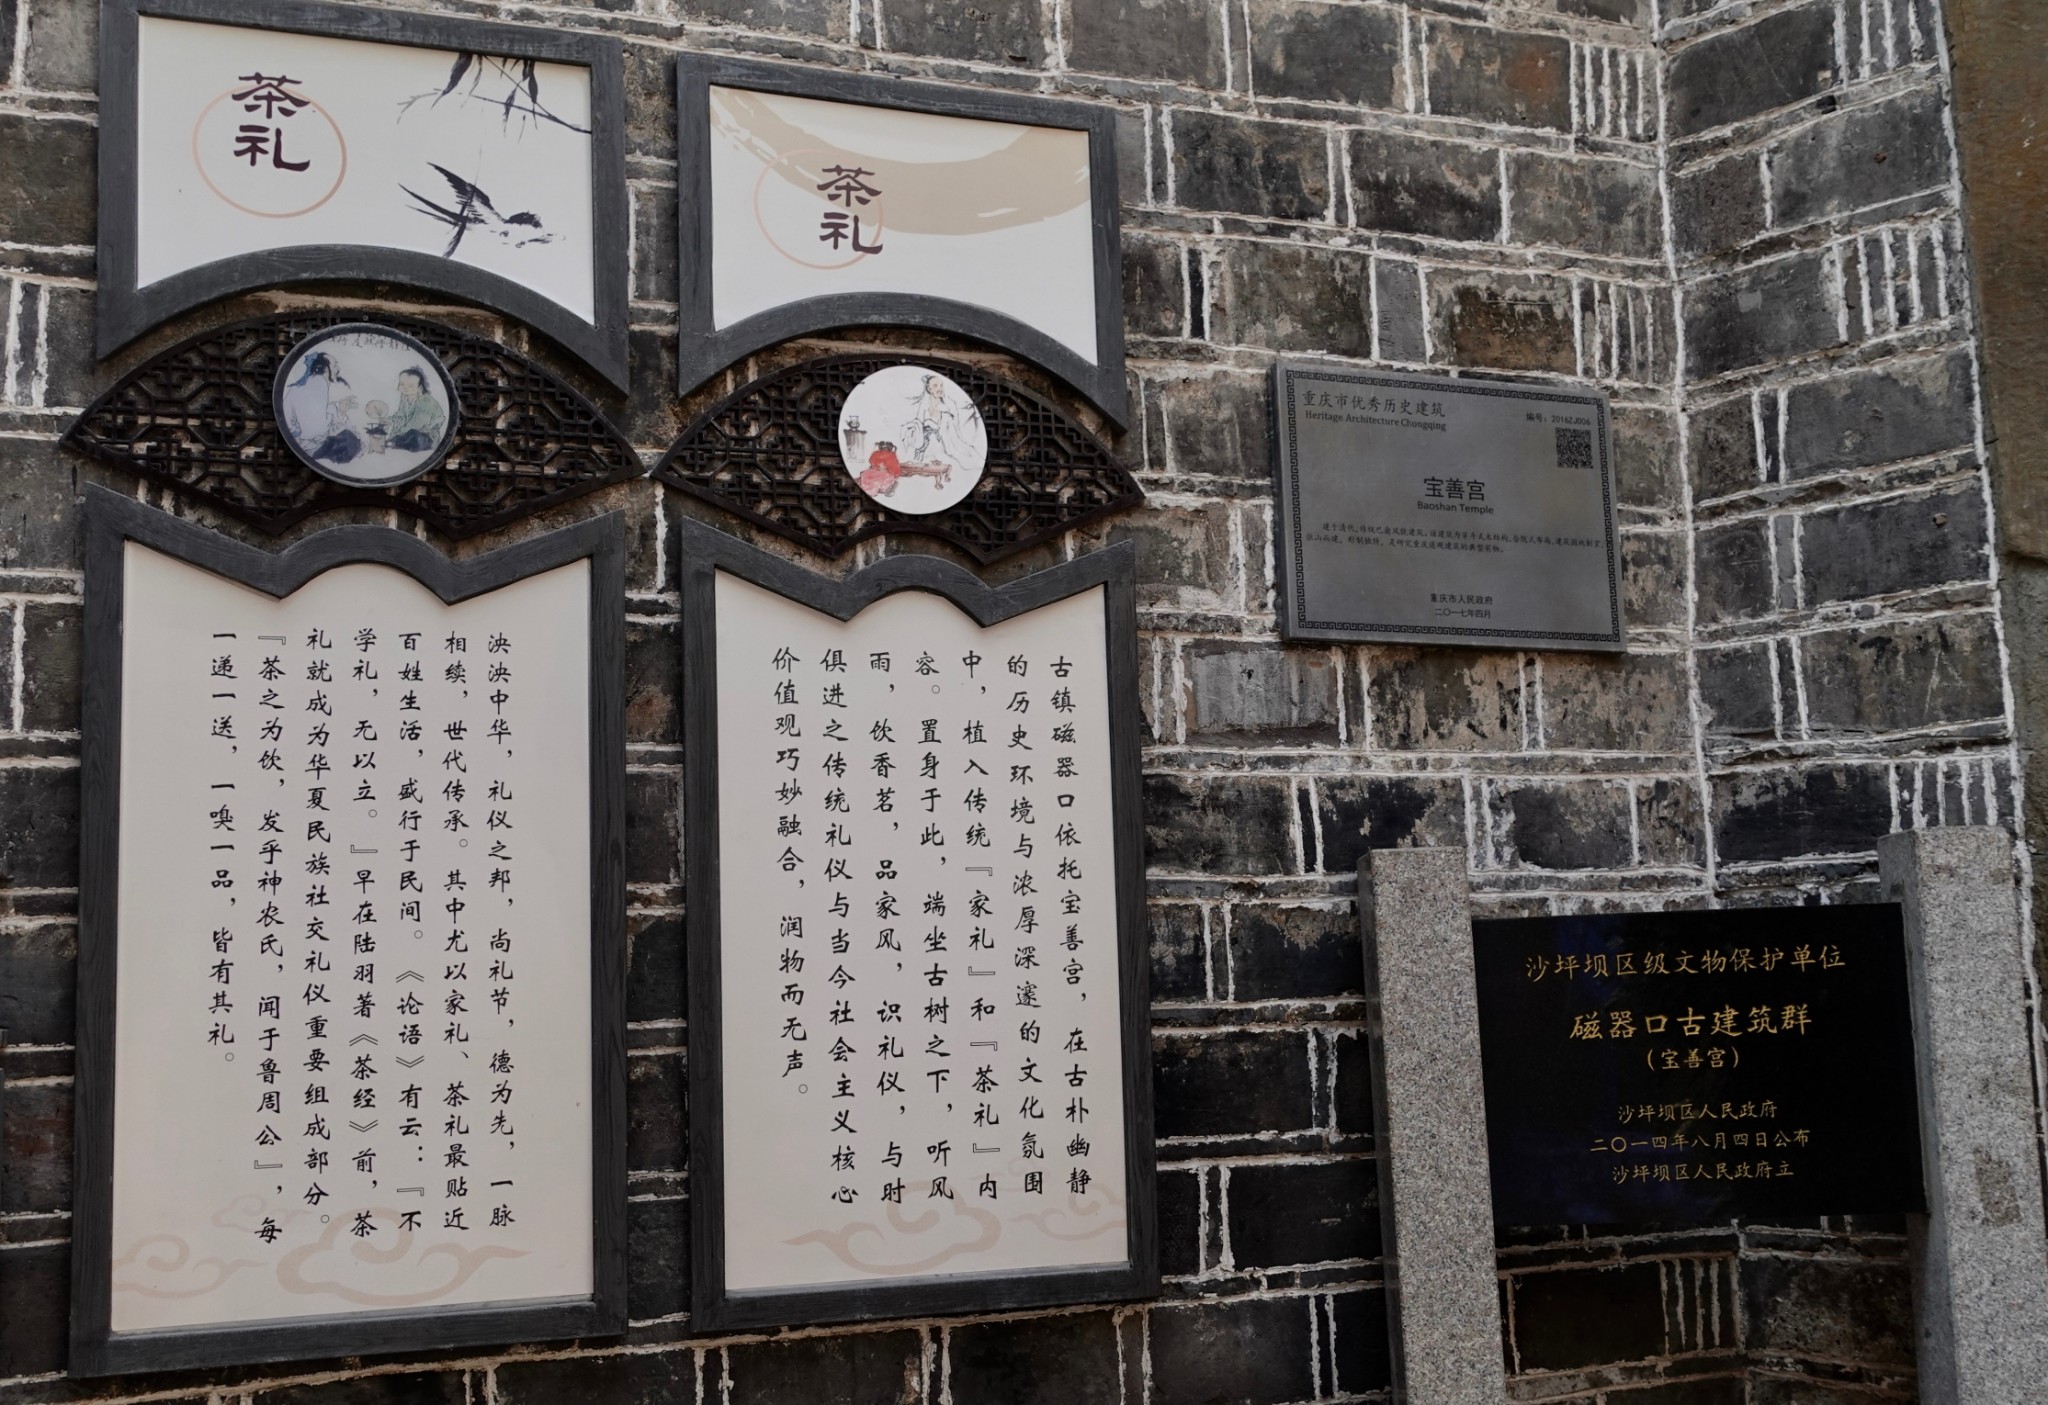 茶礼
泱泱中华，礼仪之邦，尚礼节，德为先，一脉
相续，世代传承。其中尤以家礼、茶礼最贴近
百姓生活，盛行于民间。《论语》有云：『不
学礼，无以立。』早在陆羽著《茶经》前，茶
礼就成为华夏民族社交礼仪重要组成部分。
『茶之为饮，发乎神农氏，闻于鲁周公』，每
一递一送，一嗅一品，皆有其礼。
茶礼
古镇磁器口依托宝善宫，在古朴幽静
的历史环境与浓厚深邃的文化氛围
中，植入传统『家礼』和『茶礼』内
容。置身于此，端坐古树之下，听风
雨，饮香茗，品家风，识礼仪，与时
俱进之传统礼仪与当今社会主义核心
价值观巧妙融合，润物而无声。
重庆市优秀历史建筑
Heritage Architecture Chongqing
编号：2016ZJ006
宝善宫
Baoshan Temple
建于清代，传统巴渝风貌建筑。该建筑为穿斗式木结构，合院式布局，建筑
依山而建，形制独特，是研究重庆道观建筑的典型实物。
重庆市人民政府
二〇一七年四月
沙坪坝区级文物保护单位
磁器口古建筑群
（宝善宫）
沙坪坝区人民政府
二〇一四年八月四日公布
沙坪坝区人民政府立